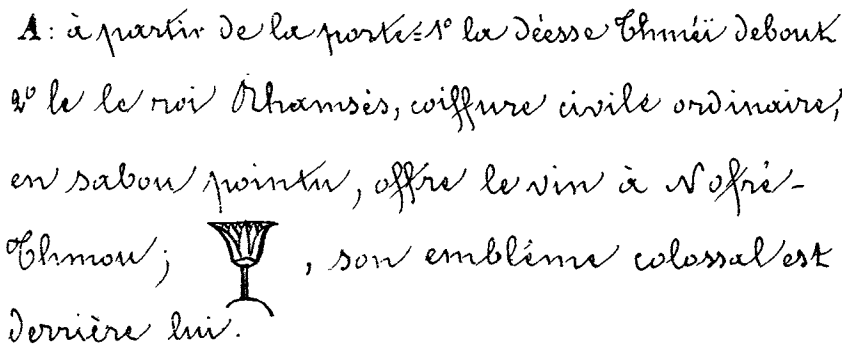 A: à partir de la porte=1° la déesse Thméï debout
2° le le roi Rhamsès, coiffure civile ordinaire,
en sabou pointu, offre le vin à Nofré-
Thmou; , son emblême colossal est
derrière lui.